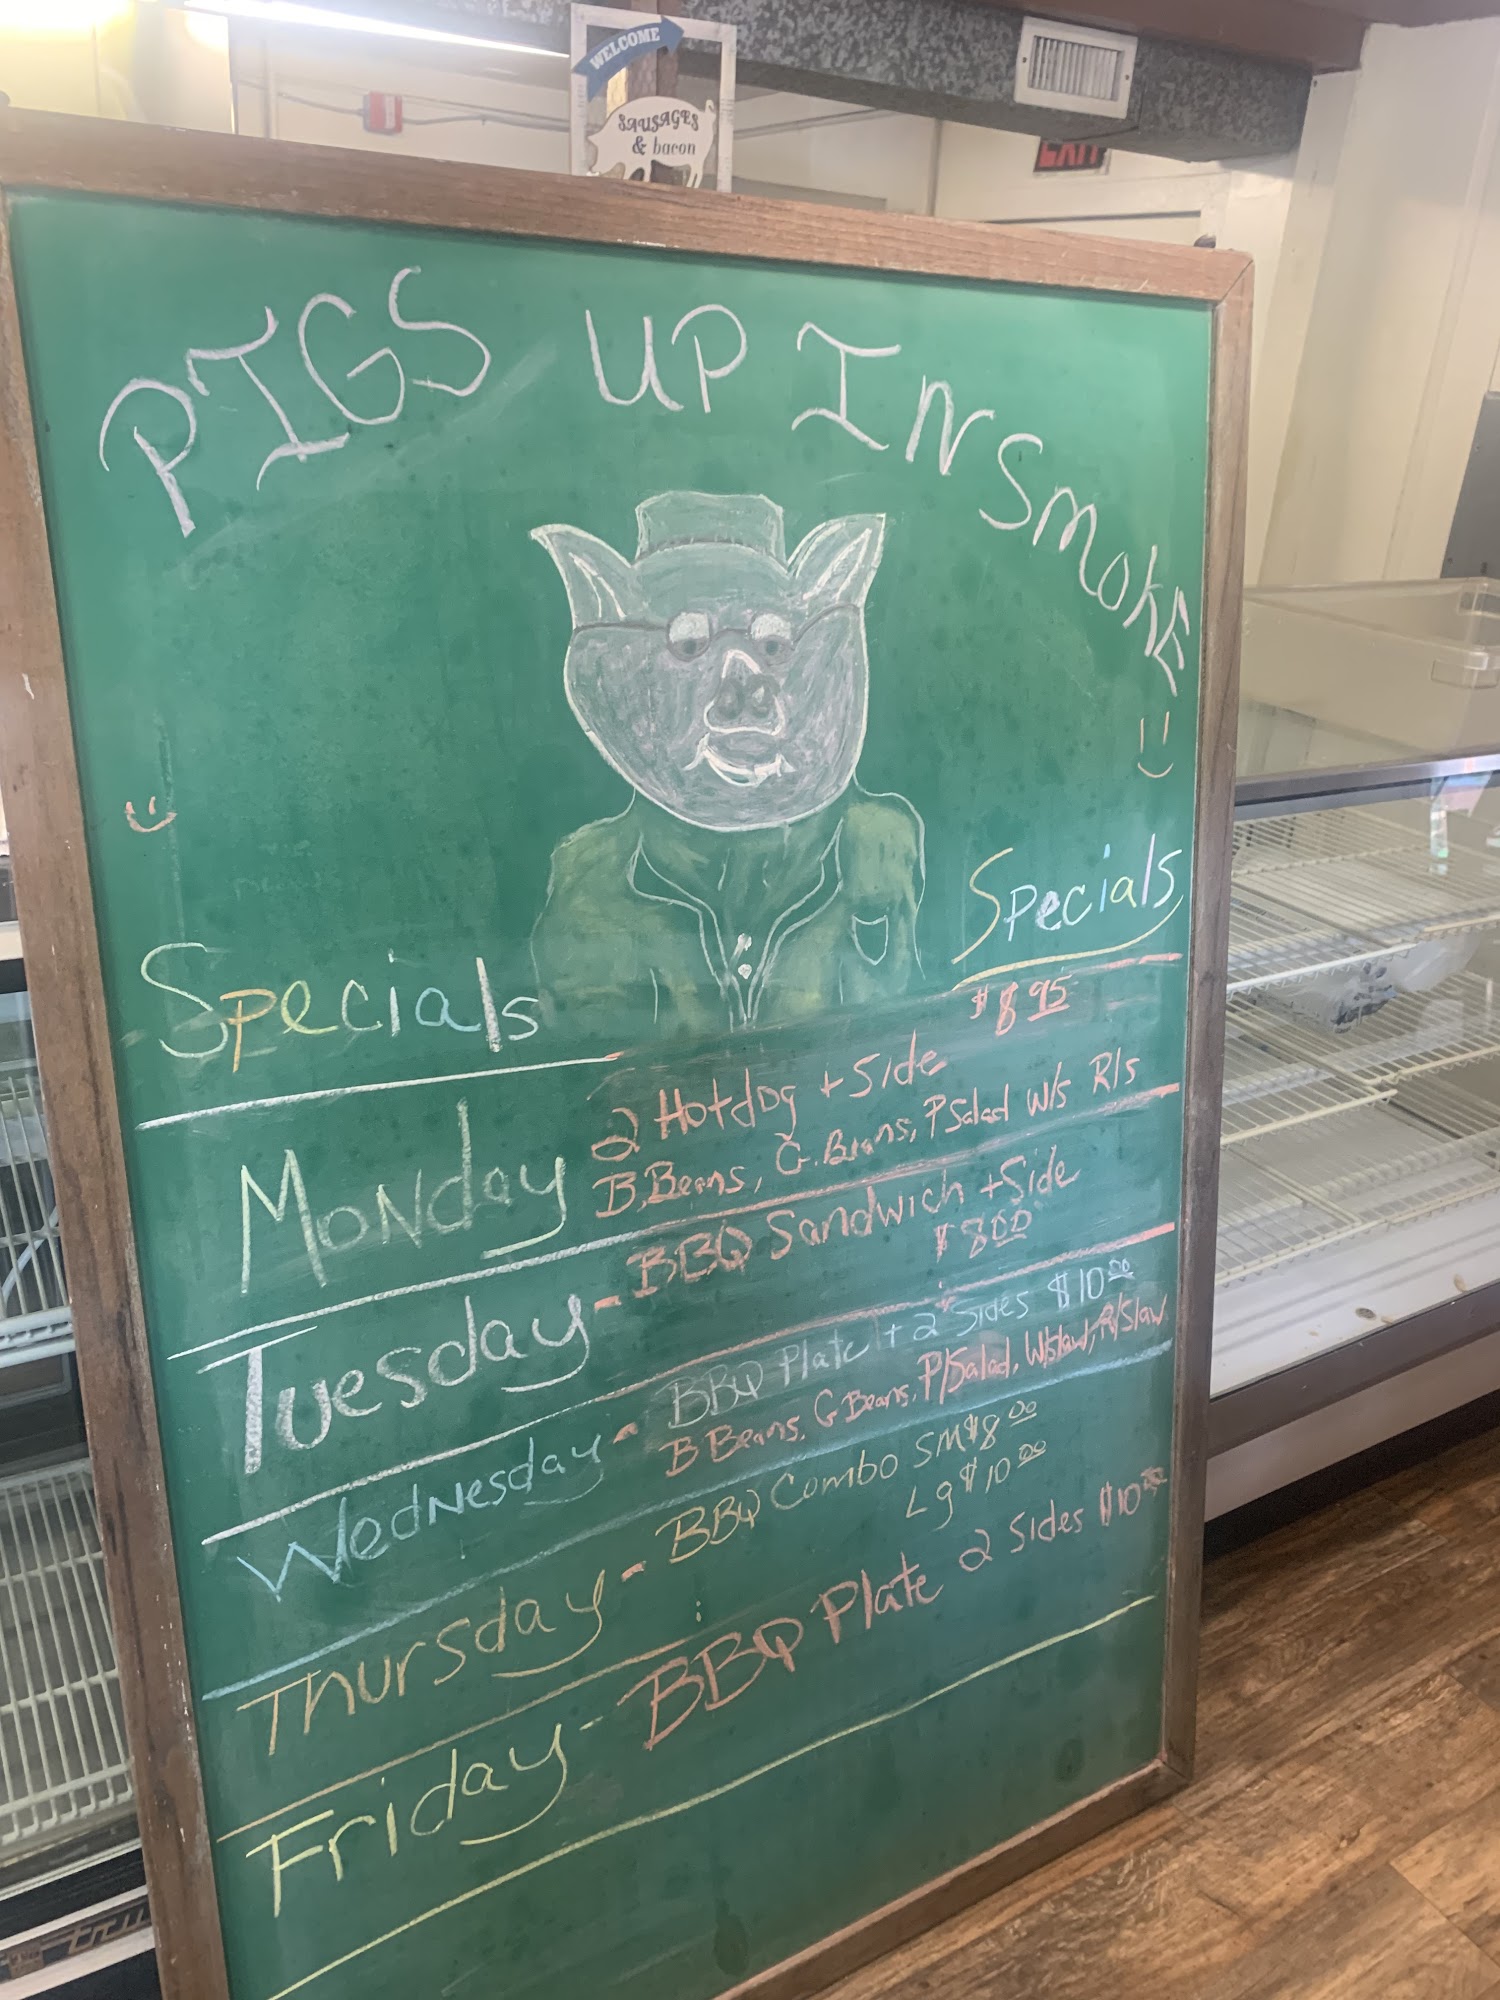 WELCOME
SAUSAGES
& bacon
EXIT
PIGS UP IN SMOKE
Specials
Specials
Monday 2 Hotdog + Side $8.95
B.Beans, G.Beans, P Salad W/s R/s
Tuesday - BBQ Sandwich + Side
$8.00
Wednesday - BBQ Plate + 2 Sides $10.00
B Beans, G Beans, P/Salad, W/slaw, R/Slaw
Thursday - BBQ Combo SM $8.00
Lg $10.00
Friday - BBQ Plate 2 Sides $10.00